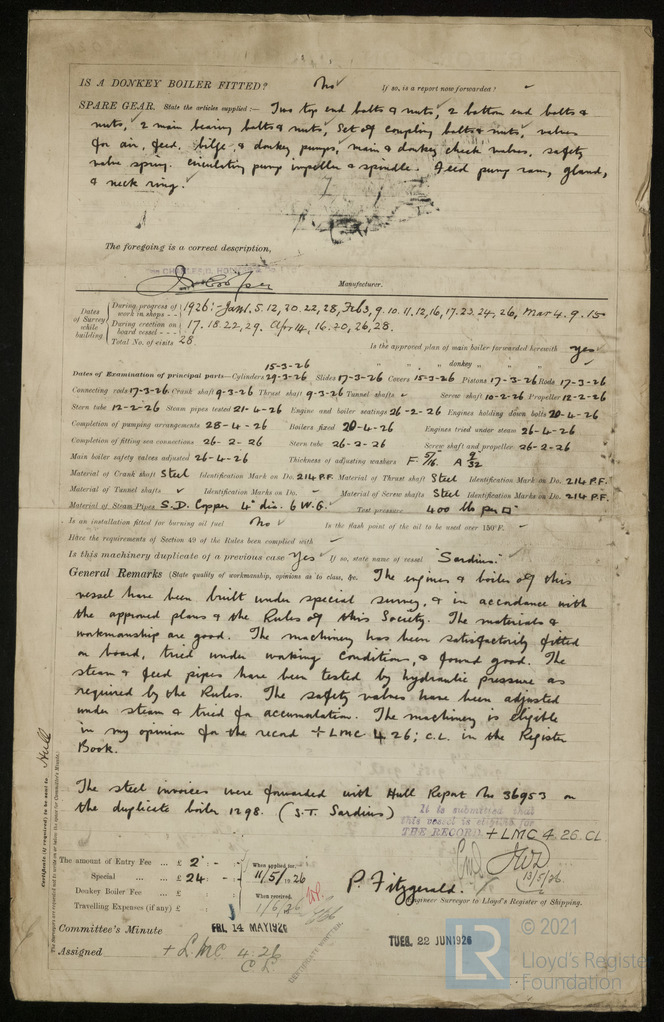 IS A DONKEY BOILER FITTED? No ✓ If so, is a report now forwarded? ✓
SPARE GEAR. State the articles supplied:— Two top end bolts & nuts, 2 bottom end bolts &
nuts, 2 main bearing bolts & nuts, Set of coupling bolts & nuts, valves
for air, feed, bilge, & donkey pumps, main & donkey check valves, safety
valve spring. circulating pump impeller & spindle. Feed pump ram, gland,
& neck ring.
The foregoing is a correct description,
Manufacturer.
Dates of Survey while building
During progress of work in shops - - 1926:- Jan 1. 5. 12, 20. 22, 28, Feb 3, 9. 10. 11, 12, 16, 17. 23. 24, 26, Mar 4. 9. 15
During erection on board vessel - - 17. 18. 22, 29. Apr 14, 16. 20, 26, 28.
Total No. of visits 28
Is the approved plan of main boiler forwarded herewith yes
" " " donkey " " "
Dates of Examination of principal parts—Cylinders 15-3-26 29-3-26 Slides 17-3-26 Covers 15-3-26 Pistons 17-3-26 Rods 17-3-26
Connecting rods 17-3-26 Crank shaft 9-3-26 Thrust shaft 9-3-26 Tunnel shafts ✓ Screw shaft 10-2-26 Propeller 12-2-26
Stern tube 12-2-26 Steam pipes tested 21-4-26 Engine and boiler seatings 26-2-26 Engines holding down bolts 20-4-26
Completion of pumping arrangements 28-4-26 Boilers fixed 20-4-26 Engines tried under steam 26-4-26
Completion of fitting sea connections 26-2-26 Stern tube 26-2-26 Screw shaft and propeller 26-2-26
Main boiler safety valves adjusted 26-4-26 Thickness of adjusting washers F. 5/16 A 9/32
Material of Crank shaft Steel Identification Mark on Do. 214 P.F. Material of Thrust shaft Steel Identification Mark on Do. 214 P.F.
Material of Tunnel shafts ✓ Identification Marks on Do. ✓ Material of Screw shafts Steel Identification Marks on Do. 214 P.F.
Material of Steam Pipes S.D. Copper 4" dia. 6 W.G. Test pressure 400 lbs per □"
Is an installation fitted for burning oil fuel No ✓ Is the flash point of the oil to be used over 150°F. ✓
Have the requirements of Section 49 of the Rules been complied with ✓
Is this machinery duplicate of a previous case Yes ✓ If so, state name of vessel "Sardius"
General Remarks (State quality of workmanship, opinions as to class, &c. The engines & boiler of this
vessel have been built under special survey, & in accordance with
the approved plans & the Rules of this Society. The materials &
workmanship are good. The machinery has been satisfactorily fitted
on board, tried under working conditions, & found good. The
steam & feed pipes have been tested by hydraulic pressure as
required by the Rules. The safety valves have been adjusted
under steam & tried for accumulation. The machinery is eligible
in my opinion for the record + LMC 4 26; C.L. in the Register
Book.
The steel invoices were forwarded with Hull Report No 36953 on
the duplicate boiler 1298. (S.T. Sardius)
It is submitted that
this vessel is eligible for
THE RECORD. + LMC 4. 26. CL
13/5/26.
Certificate (if required) to be sent to Hull
The amount of Entry Fee ... £ 2 : - : When applied for,
Special ... £ 24 : - : 11/5/1926
Donkey Boiler Fee ... £ : : When received,
Travelling Expenses (if any) £ : : 1/6/26
P. Fitzgerald.
Engineer Surveyor to Lloyd's Register of Shipping.
Committee's Minute FRI. 14 MAY 1926 TUES. 22 JUN 1926
Assigned + L.M.C. 4.26
C L
CERTIFICATE WRITTEN.
LR
© 2021
Lloyd's Register
Foundation